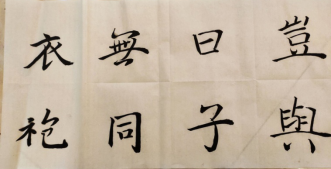 豈曰無衣
與子同袍